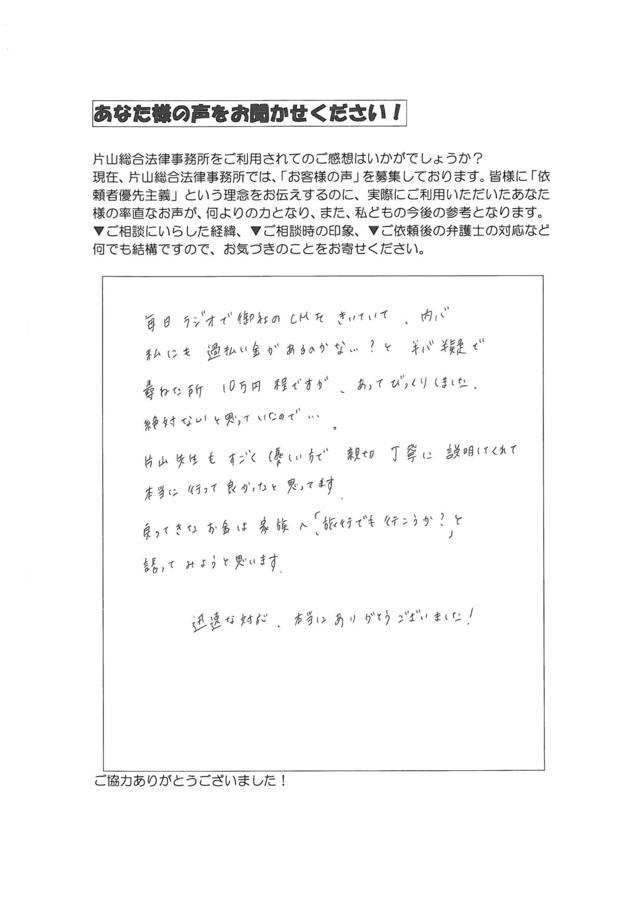 あなた様の声をお聞かせください!
片山総合法律事務所をご利用されてのご感想はいかがでしょうか?
現在、片山総合法律事務所では、「お客様の声」を募集しております。皆様に「依
頼者優先主義」という理念をお伝えするのに、実際にご利用いただいたあなた
様の率直なお声が、何よりの力となり、また、私どもの今後の参考となります。
▼ご相談にいらした経緯、▼ご相談時の印象、▼ご依頼後の弁護士の対応など
何でも結構ですので、お気づきのことをお寄せください。
毎日ラジオで御社のCMをきいていて、内心
私にも過払い金があるのかな…?と半信半疑で
尋ねた所 10万円程ですが、あってびっくりしました。
絶対ないと思っていたので…。
片山先生もすごく優しい方で 親切 丁寧に 説明してくれて
本当に行って良かったと思ってます。
戻ってきたお金は家族へ「旅行でも行こうか?」と
誘ってみようと思います。
迅速な対応、本当にありがとうございました!
ご協力ありがとうございました!